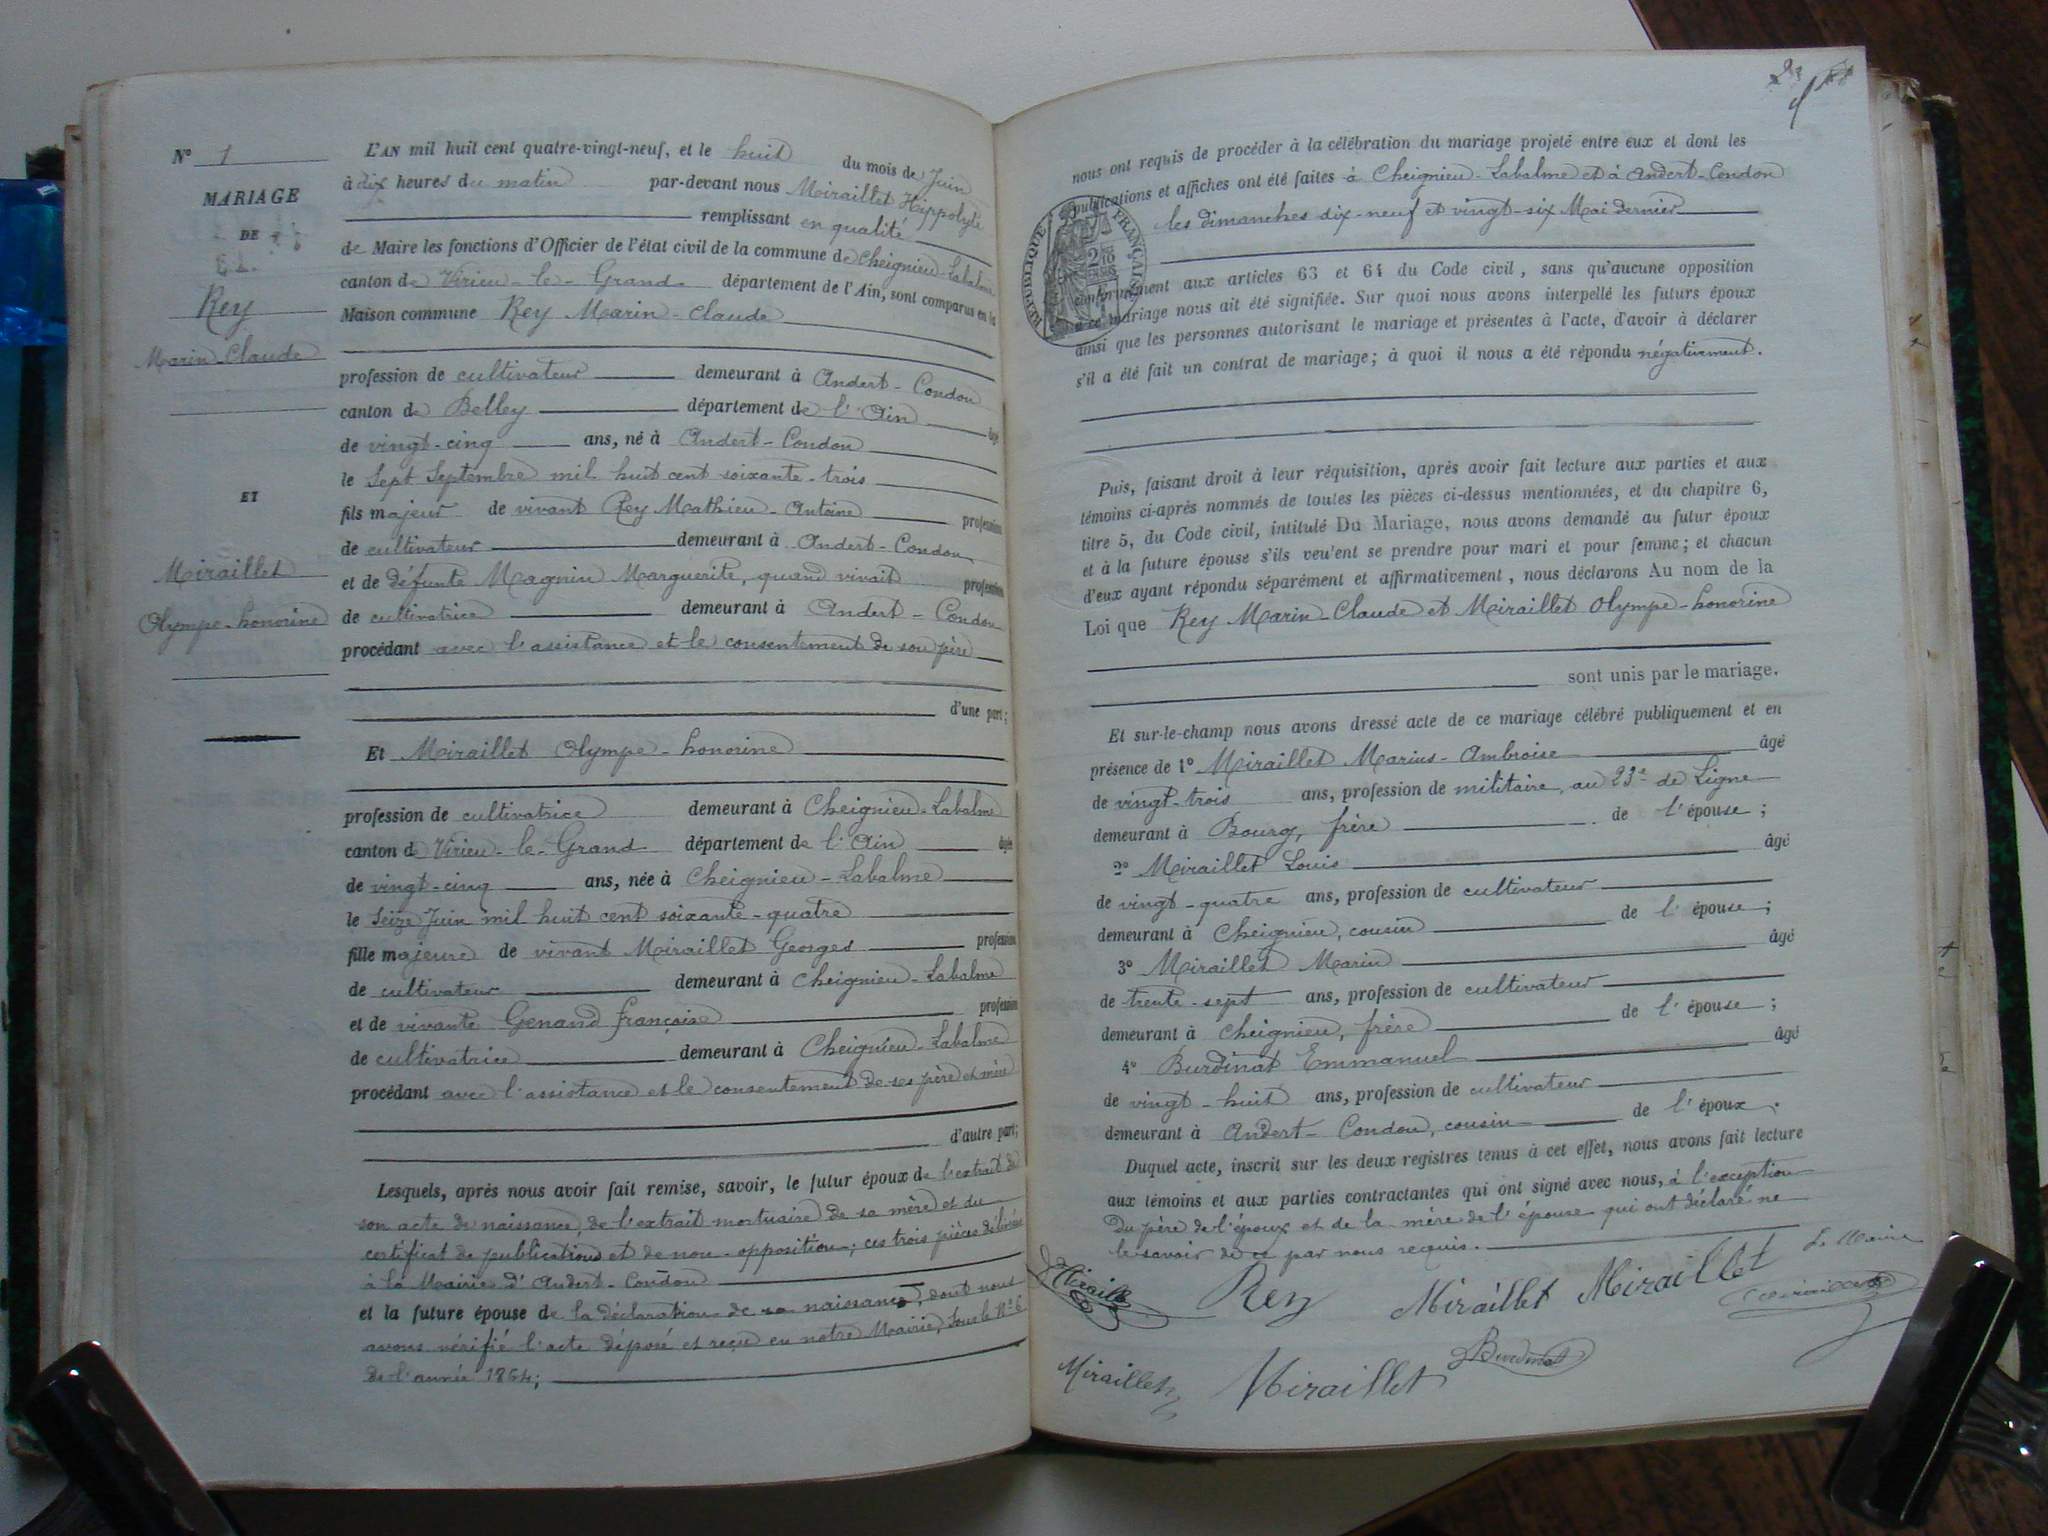 N° 1
MARIAGE
DE
Rey
Marin-Claude
ET
Miraillet
Olympe-honorine
L'AN mil huit cent quatre-vingt-neuf, et le huit du mois de Juin
à dix heures du matin par-devant nous Miraillet Hippolyte
remplissant en qualité
de Maire les fonctions d'Officier de l'état civil de la commune de Cheignieu-Labalme
canton de Virieu-le-Grand département de l'Ain, sont comparus en la
Maison commune Rey Marin-Claude
profession de cultivateur demeurant à Andert-Condon
canton de Belley département de l'Ain âgé
de vingt-cinq ans, né à Andert-Condon
le Sept Septembre mil huit cent soixante-trois
fils majeur de vivant Rey Mathieu-Antoine profession
de cultivateur demeurant à Andert-Condon
et de défunte Magnin Marguerite, quand vivait profession
de cultivatrice demeurant à Andert-Condon
procédant avec l'assistance et le consentement de son père
d'une part;
Et Miraillet Olympe-honorine
profession de cultivatrice demeurant à Cheignieu-Labalme
canton de Virieu-le-Grand département de l'Ain âgée
de vingt-cinq ans, née à Cheignieu-Labalme
le Seize Juin mil huit cent soixante-quatre
fille majeure de vivant Miraillet Georges profession
de cultivateur demeurant à Cheignieu-Labalme
et de vivante Genand françoise profession
de cultivatrice demeurant à Cheignieu-Labalme
procédant avec l'assistance et le consentement de ses père et mère
d'autre part;
Lesquels, après nous avoir fait remise, savoir, le futur époux de l'extrait de
son acte de naissance, de l'extrait mortuaire de sa mère et du
certificat de publications et de non-opposition; ces trois pièces délivrées
à la Mairie d'Andert-Condon
et la future épouse de la déclaration de sa naissance, dont nous
avons vérifié l'acte déposé et reçu en notre Mairie, sous le N° 6
de l'année 1864;
nous ont requis de procéder à la célébration du mariage projeté entre eux et dont les
publications et affiches ont été faites à Cheignieu-Labalme et à Andert-Condon
les dimanches dix-neuf et vingt-six Mai dernier
RÉPUBLIQUE FRANÇAISE
conformément aux articles 63 et 64 du Code civil, sans qu'aucune opposition
à ce mariage nous ait été signifiée. Sur quoi nous avons interpellé les futurs époux
ainsi que les personnes autorisant le mariage et présentes à l'acte, d'avoir à déclarer
s'il a été fait un contrat de mariage; à quoi il nous a été répondu négativement.
Puis, faisant droit à leur réquisition, après avoir fait lecture aux parties et aux
témoins ci-après nommés de toutes les pièces ci-dessus mentionnées, et du chapitre 6,
titre 5, du Code civil, intitulé Du Mariage, nous avons demandé au futur époux
et à la future épouse s'ils veu'ent se prendre pour mari et pour femme; et chacun
d'eux ayant répondu séparément et affirmativement, nous déclarons Au nom de la
Loi que Rey Marin-Claude et Miraillet Olympe-honorine
sont unis par le mariage.
Et sur-le-champ nous avons dressé acte de ce mariage célébré publiquement et en
présence de 1° Miraillet Marius-Ambroise âgé
de vingt-trois ans, profession de militaire, au 23e de Ligne
demeurant à Bourg, frère de l'épouse;
2° Miraillet Louis âgé
de vingt-quatre ans, profession de cultivateur
demeurant à Cheignieu, cousin de l'épouse;
3° Miraillet Marin âgé
de trente-sept ans, profession de cultivateur
demeurant à Cheignieu, frère de l'épouse;
4° Burdinat Emmanuel âgé
de vingt-huit ans, profession de cultivateur
demeurant à Andert-Condon, cousin de l'époux.
Duquel acte, inscrit sur les deux registres tenus à cet effet, nous avons fait lecture
aux témoins et aux parties contractantes qui ont signé avec nous, à l'exception
Du père de l'époux et de la mère de l'épouse qui ont déclaré ne
le savoir de ce par nous requis.
Le Maire
Rey Miraillet Miraillet
Miraillet Miraillet Burdinat